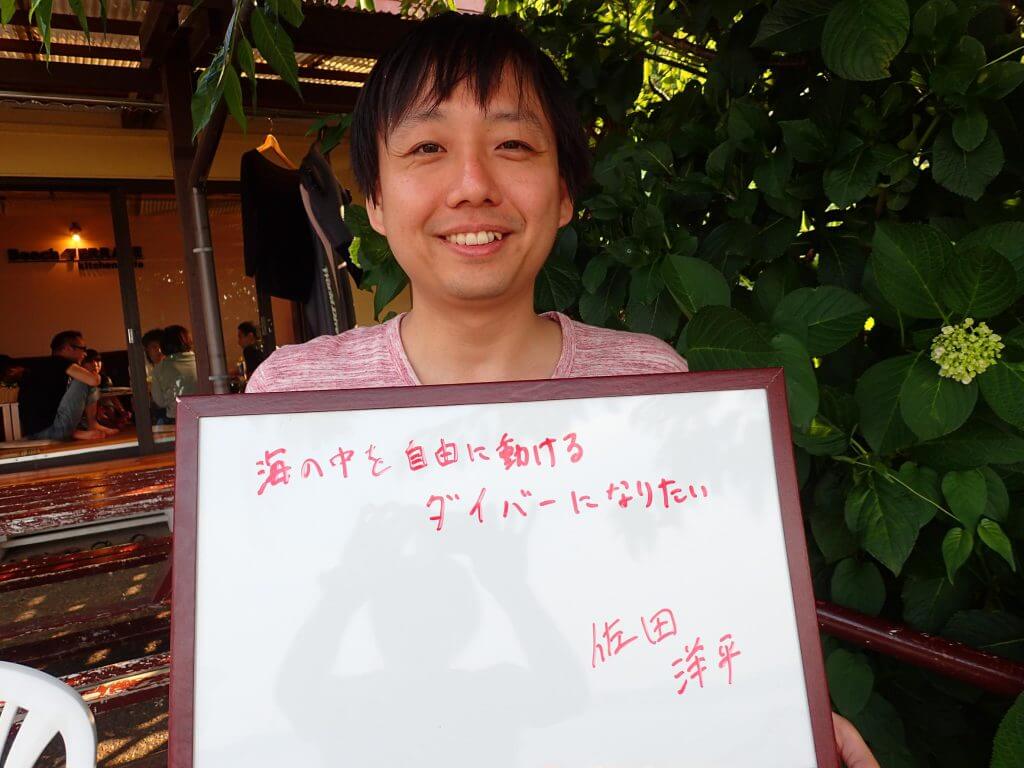 海の中を自由に動ける
ダイバーになりたい
佐田
洋平
Beach TERRACE